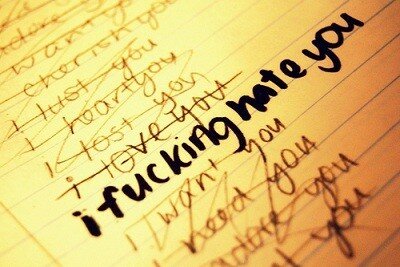 adore you
want you
cherish you
i lust you
i heart you
i lost you
i love you
i fucking hate you
i want you
i need you
adore you
you